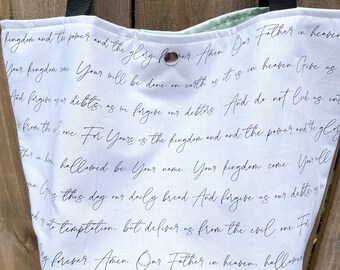 kingdom and the power and the glory forever Amen Our Father in heaven
Your kingdom come Your will be done on earth as it is in heaven Give us
And forgive us our debts, as we forgive our debtors And do not lead us into
us from the evil one For Yours is the kingdom and and the power and the glory
Father in heaven hallowed be Your name Your kingdom come Your will
heaven Give us this day our daily bread And forgive us our debts as
lead us into temptation but deliver us from the evil one For
glory forever Amen Our Father in heaven, hallowed